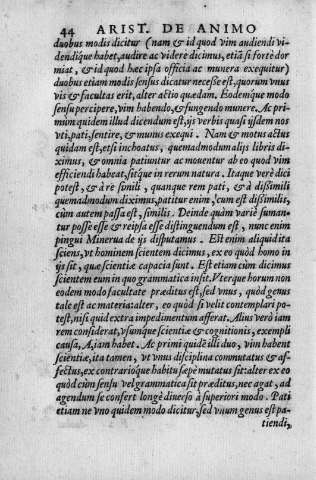 44 ARIST. DE ANIMO
duobus modis dicitur (nam & id quod vim audiendi vi-
dendíque habet, audire ac videre dicimus, etiā si forte dor
miat, & id quod hæc ipsa officia ac munera exequitur)
duobus etiam modis sensus dicatur necesse est, quorum vnus
vis & facultas erit, alter actio quædam. Eodemque modo
sensu percipere, vim habendo, & fungendo munere. Ac pri-
mum quidem illud dicendum est, ijs verbis quasi ijsdem nos
vti, pati, sentire, & munus exequi. Nam & motus actus
quidam est, etsi inchoatus, quemadmodum alijs libris di-
ximus, & omnia patiuntur ac mouentur ab eo quod vim
efficiendi habeat, sitque in rerum natura. Itaque verè dici
potest, & à re simili, quanque rem pati, & à dissimili
quemadmodum diximus, patitur enim, cum est dissimilis,
cùm autem passa est, similis. Deinde quàm variè suman-
tur posse esse & reipsa esse distinguendum est, nunc enim
pingui Minerua de ijs disputamus. Est enim aliquid ita
sciens, vt hominem scientem dicimus, ex eo quòd homo in
ijs sit, quæ scientiæ capacia sunt. Est etiam cùm dicimus
scientem eum in quo grammatica insit. Vterque horum non
eodem modo facultate præditus est, sed vnus, quòd genus
tale est ac materia: alter, eo quòd si velit contemplari po-
test, nisi quid extra impedimentum afferat. Alius verò iam
rem considerat, vsumque scientiæ & cognitionis, exempli
causa, A, iam habet. Ac primi quidē illi duo, vim habent
scientiæ, ita tamen, vt vnus disciplina commutatus & af-
fectus, ex contrarióque habitu sæpe mutatus sit: alter ex eo
quòd cùm sensu vel grammatica sit præditus, nec agat, ad
agendum se confert longè diuerso à superiori modo. Pati
etiam ne vno quidem modo dicitur, sed vnum genus est pa-
tiendi,